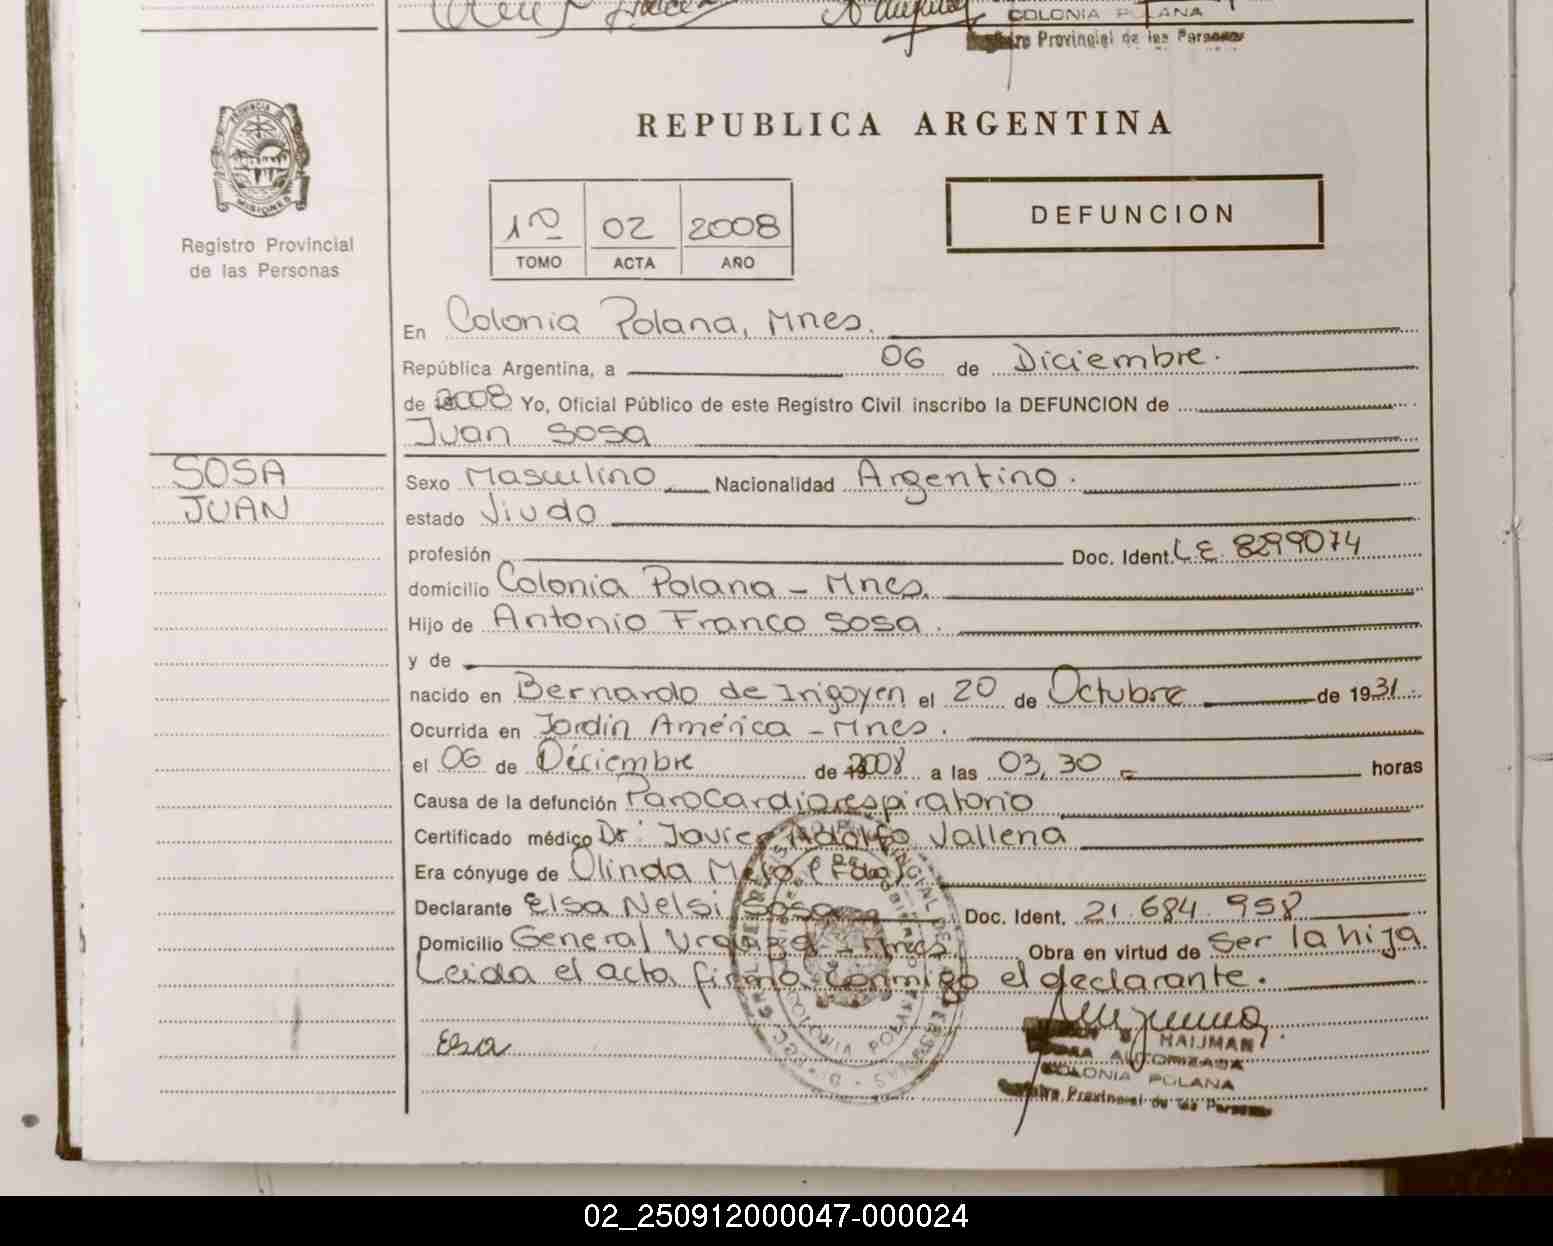 COLONIA POLANA
Provincial de las Personas
PROVINCIA DE
MISIONES
Registro Provincial
de las Personas
REPUBLICA ARGENTINA
1º 02 2008
TOMO ACTA AÑO
DEFUNCION
En Colonia Polana, Mnes.
República Argentina, a 06 de Diciembre.
de 2008 Yo, Oficial Público de este Registro Civil inscribo la DEFUNCION de
Juan Sosa
SOSA
JUAN
Sexo Masculino Nacionalidad Argentino.
estado Viudo
profesión Doc. Ident. L.E. 8299074
domicilio Colonia Polana - Mnes.
Hijo de Antonio Franco Sosa.
y de
nacido en Bernardo de Irigoyen el 20 de Octubre de 1931.
Ocurrida en Jardín América - Mnes.
el 06 de Diciembre de 2008 a las 03,30 horas
Causa de la defunción Parocardiorespiratorio
Certificado médico Dr: Javier Adolfo Vallena
Era cónyuge de Olinda Melo (Fda)
Declarante Elsa Nelsi Sosa Doc. Ident. 21.684.958
Domicilio General Urquiza - Mnes Obra en virtud de Ser la hija
Leida el acta firma conmigo el declarante.
Elsa
HAIJMAN
AUTORIZADA
COLONIA POLANA
Provincial de las Personas
COLONIA POLANA
02_250912000047-000024